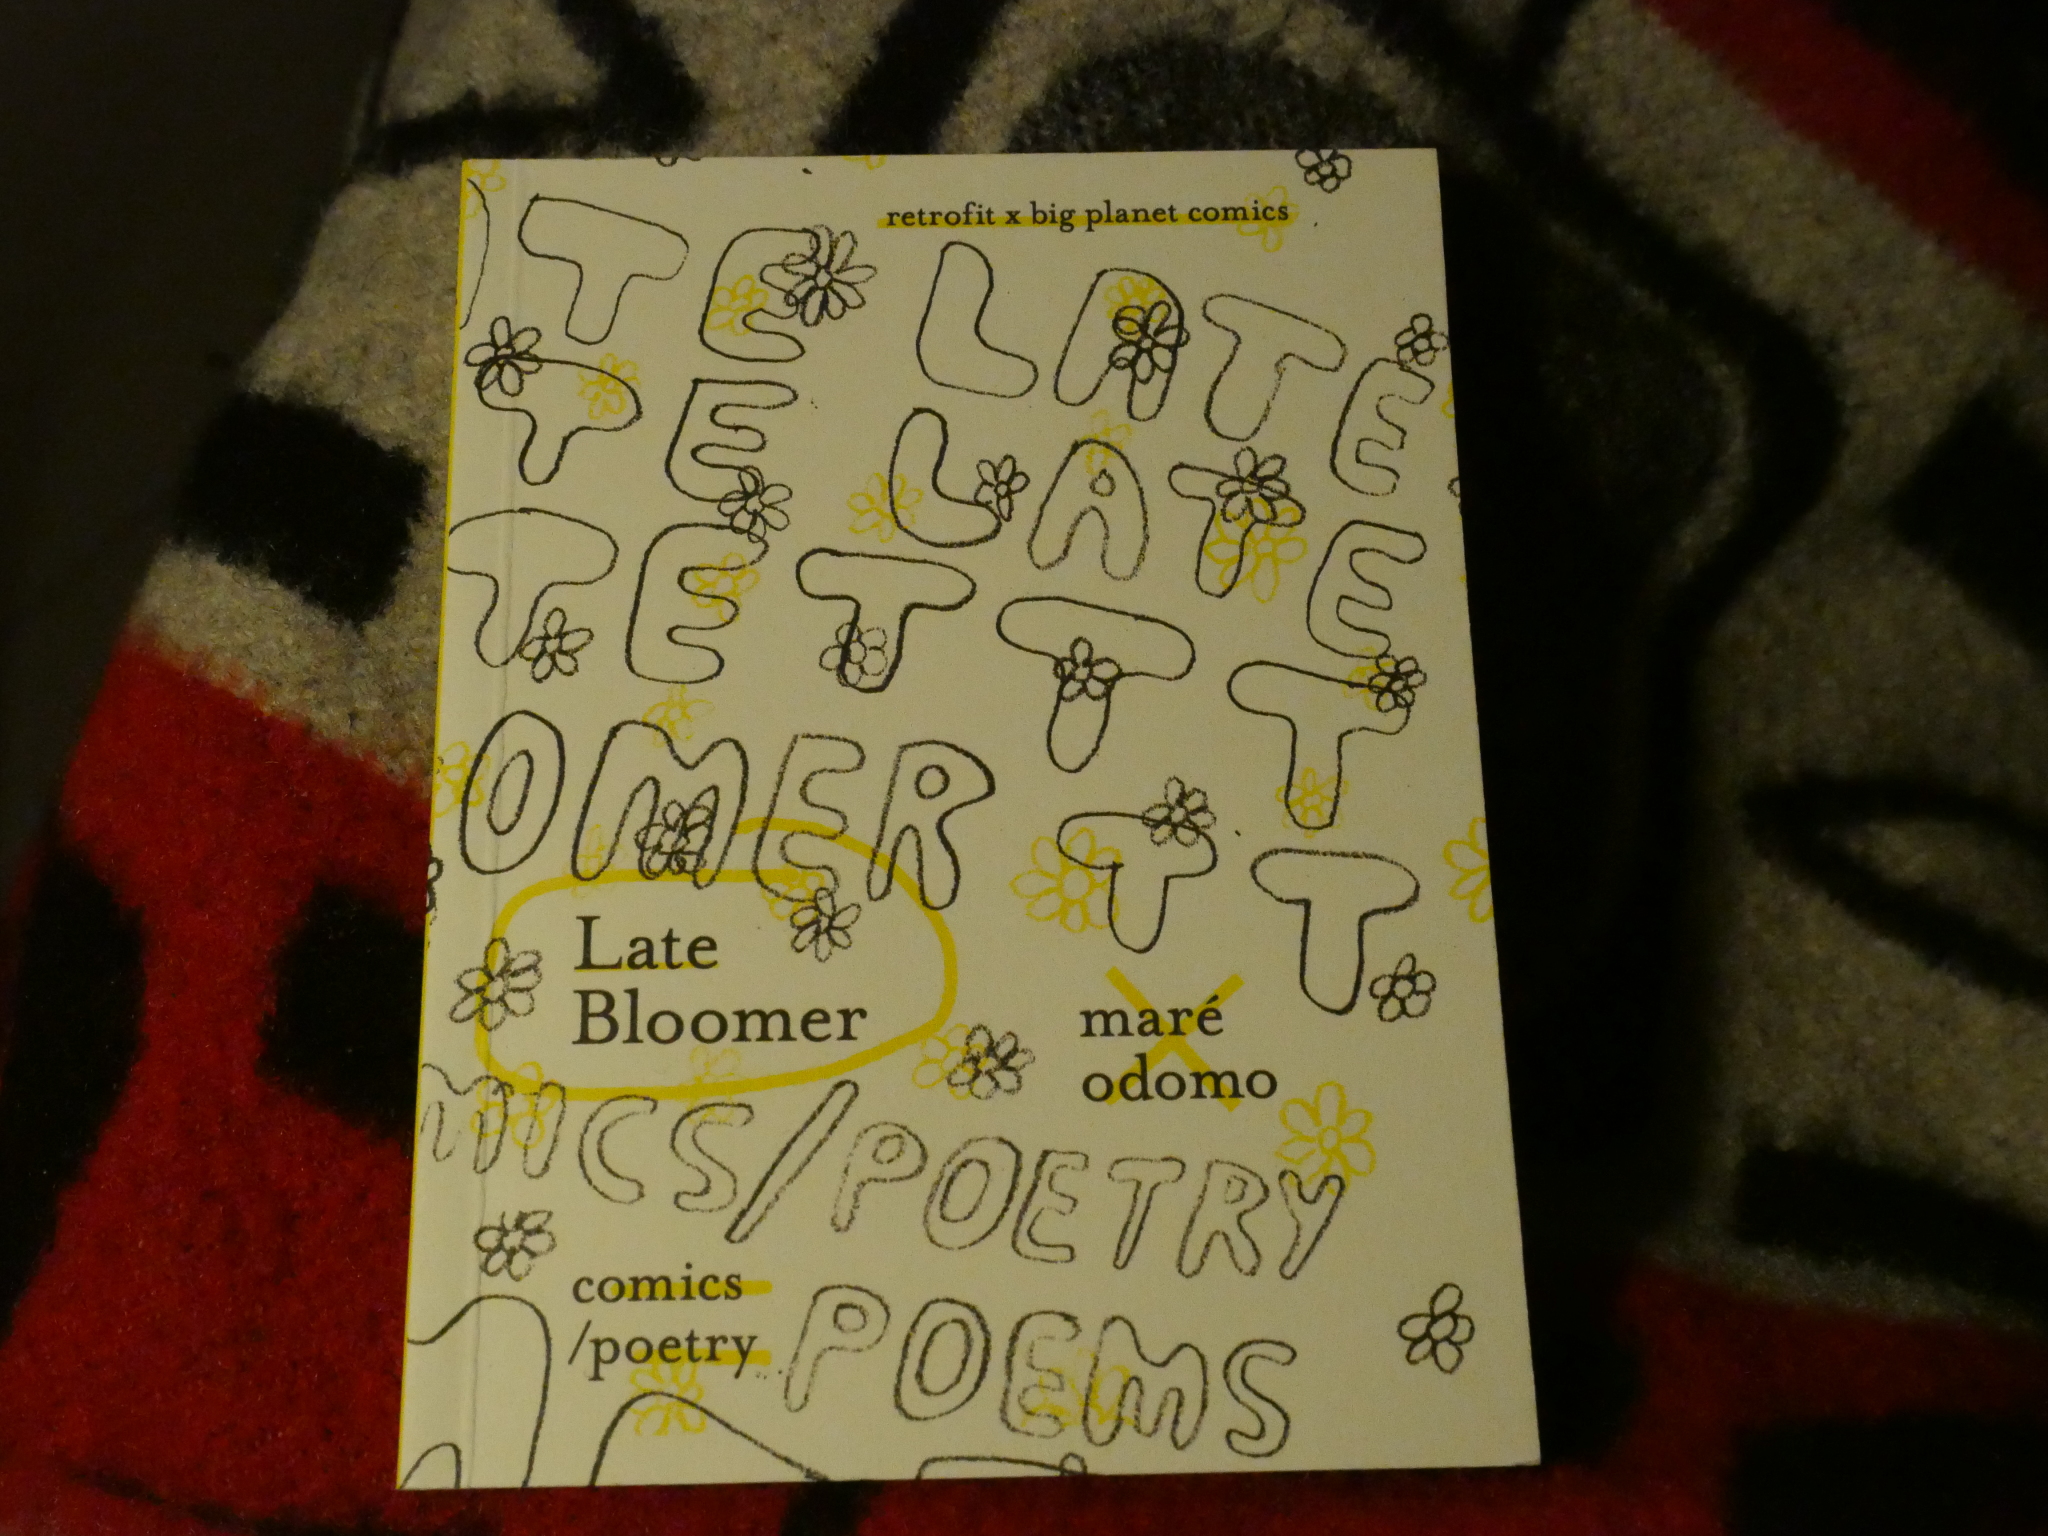 retrofit x big planet comics
TE LATE
TE LATE
TE T T T
OMER T T
Late
Bloomer
maré
odomo
MICS/POETRY
comics
/poetry
POEMS